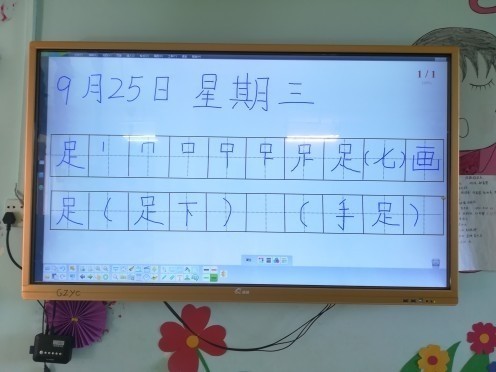 9月25日 星期三
1/1
足 丨 𠃍 口 𠮛 𤴓 ⻊ 足 (七)画
足(足下) (手足)
GZYC